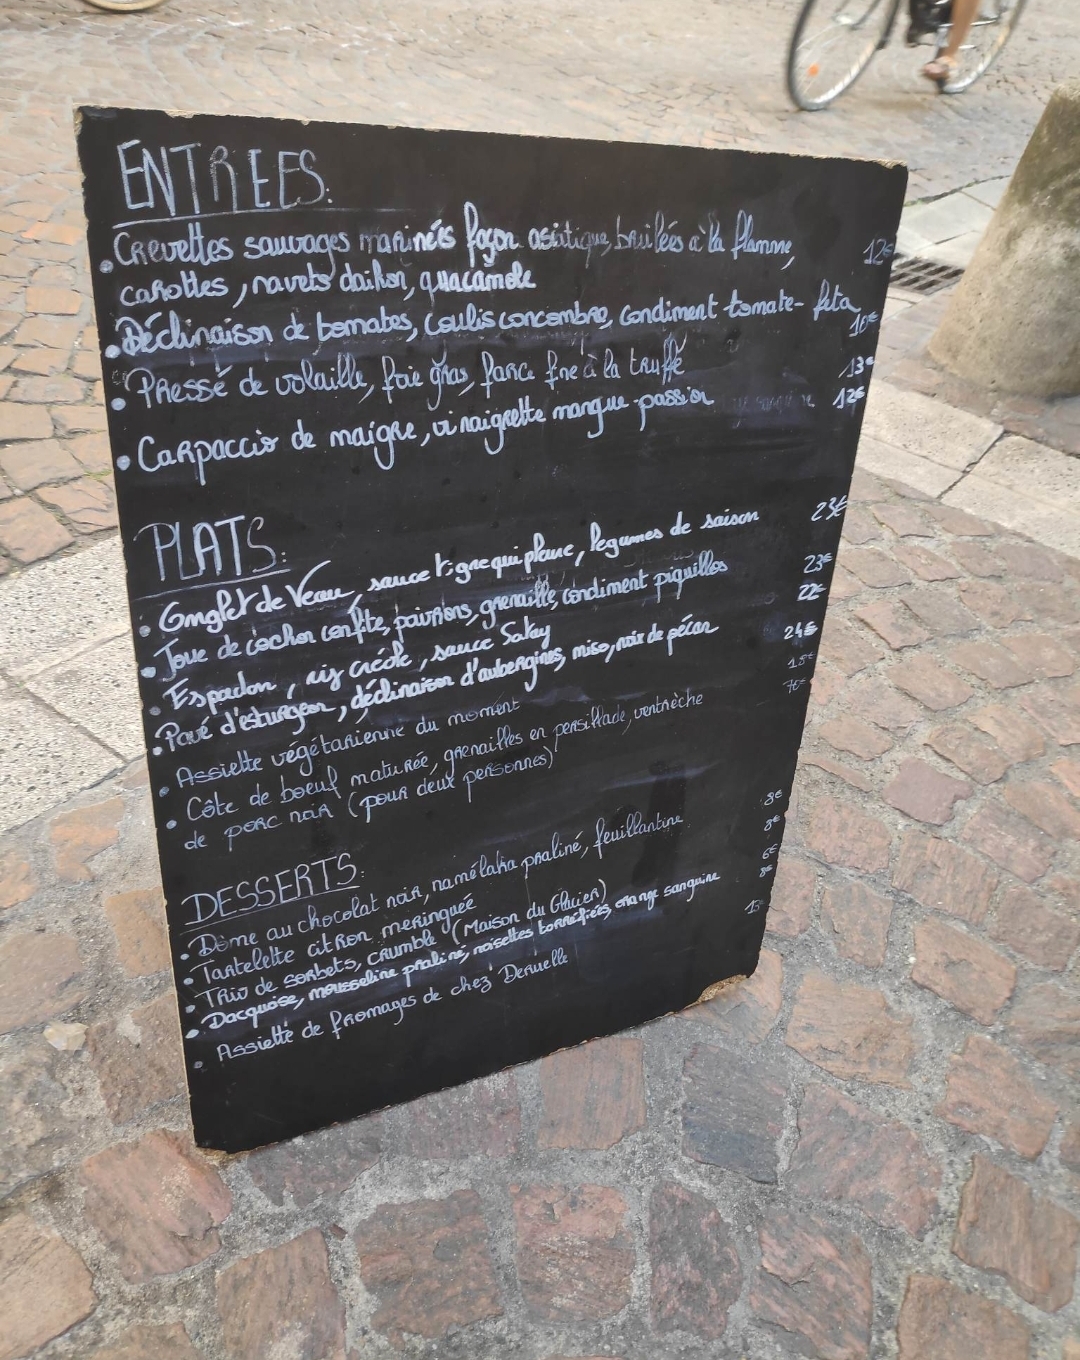 ENTREES:
• Crevettes sauvages marinées façon asiatique, brûlées à la flamme, 12€
carottes, navets daikon, guacamole
• Déclinaison de tomates, coulis concombre, condiment tomate-feta 10€
• Pressé de volaille, foie gras, farce fine à la truffe 13€
• Carpaccio de maigre, vinaigrette mangue-passion 12€
PLATS:
• Onglet de Veau, sauce tigre qui pleure, légumes de saison 23€
• Joue de cochon confite, poivrons, grenaille, condiment piquillos 23€
• Espadon, riz créole, sauce Satay 22€
• Pavé d'esturgeon, déclinaison d'aubergines, miso, noix de pécan 24€
• Assiette végétarienne du moment 18€
• Côte de boeuf maturée, grenailles en persillade, ventrèche 70€
de porc noir (pour deux personnes)
DESSERTS:
• Dôme au chocolat noir, namélaka praliné, feuillantine 8€
• Tartelette citron meringuée 8€
• Trio de sorbets, crumble (Maison du Glacier) 6€
• Dacquoise, mousseline praliné, noisettes torréfiées, orange sanguine 8€
• Assiette de fromages de chez Deruelle 13€